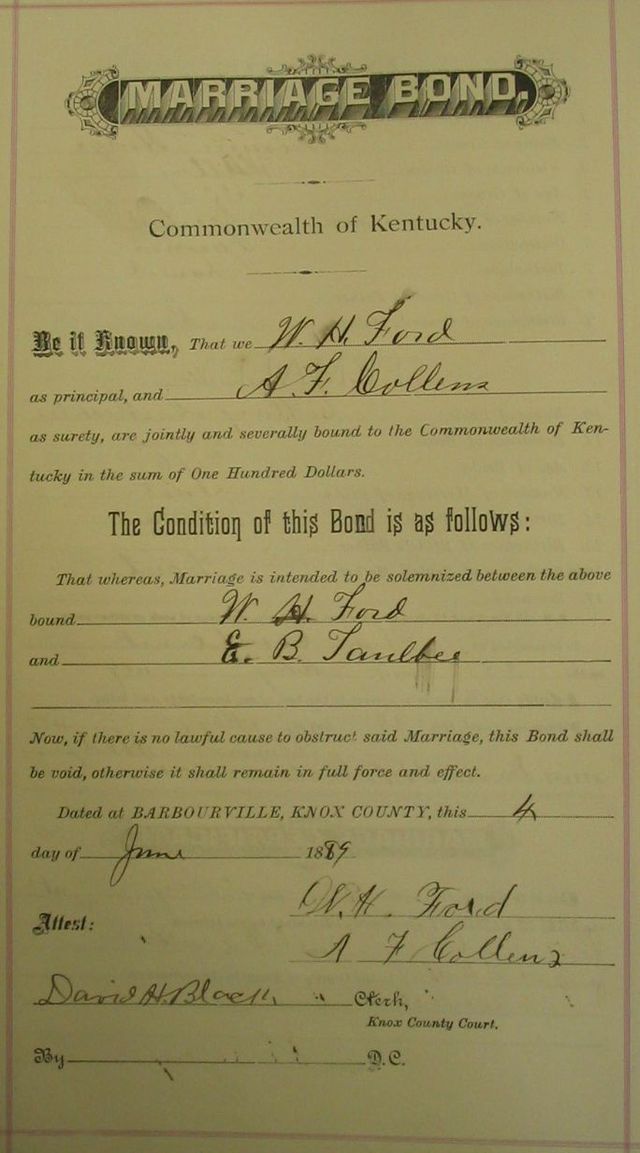 MARRIAGE BOND.
Commonwealth of Kentucky.
Be it Known, That we W. H. Ford
as principal, and A. F. Collens
as surety, are jointly and severally bound to the Commonwealth of Ken-
tucky in the sum of One Hundred Dollars.
The Condition of this Bond is as follows:
That whereas, Marriage is intended to be solemnized between the above
bound W. H. Ford
and E. B. Taulbee
Now, if there is no lawful cause to obstruct said Marriage, this Bond shall
be void, otherwise it shall remain in full force and effect.
Dated at BARBOURVILLE, KNOX COUNTY, this 4
day of June 1889
W. H. Ford
Attest:
A F Collens
David H. Black Clerk,
Knox County Court.
By D.C.